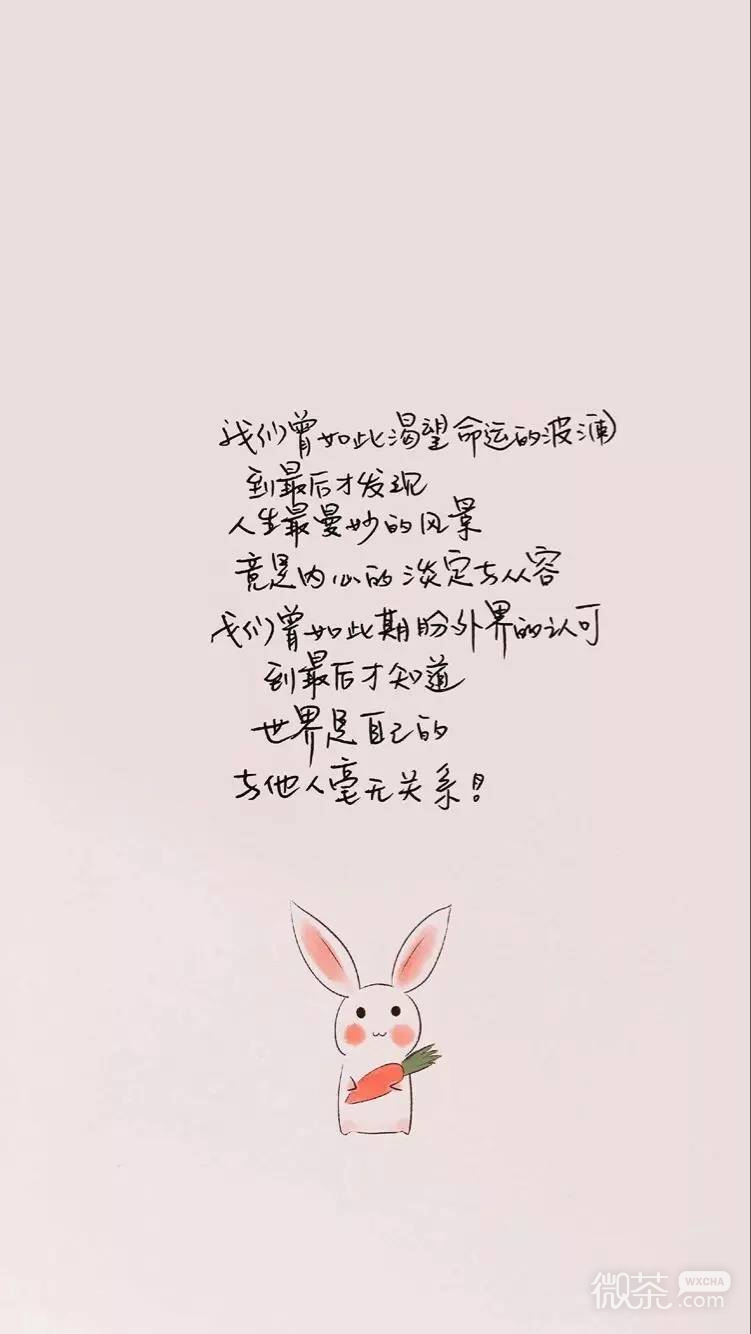 我们曾如此渴望命运的波澜
到最后才发现
人生最曼妙的风景
竟是内心的淡定与从容
我们曾如此期盼外界的认可
到最后才知道
世界是自己的
与他人毫无关系！
微茶 WXCHA